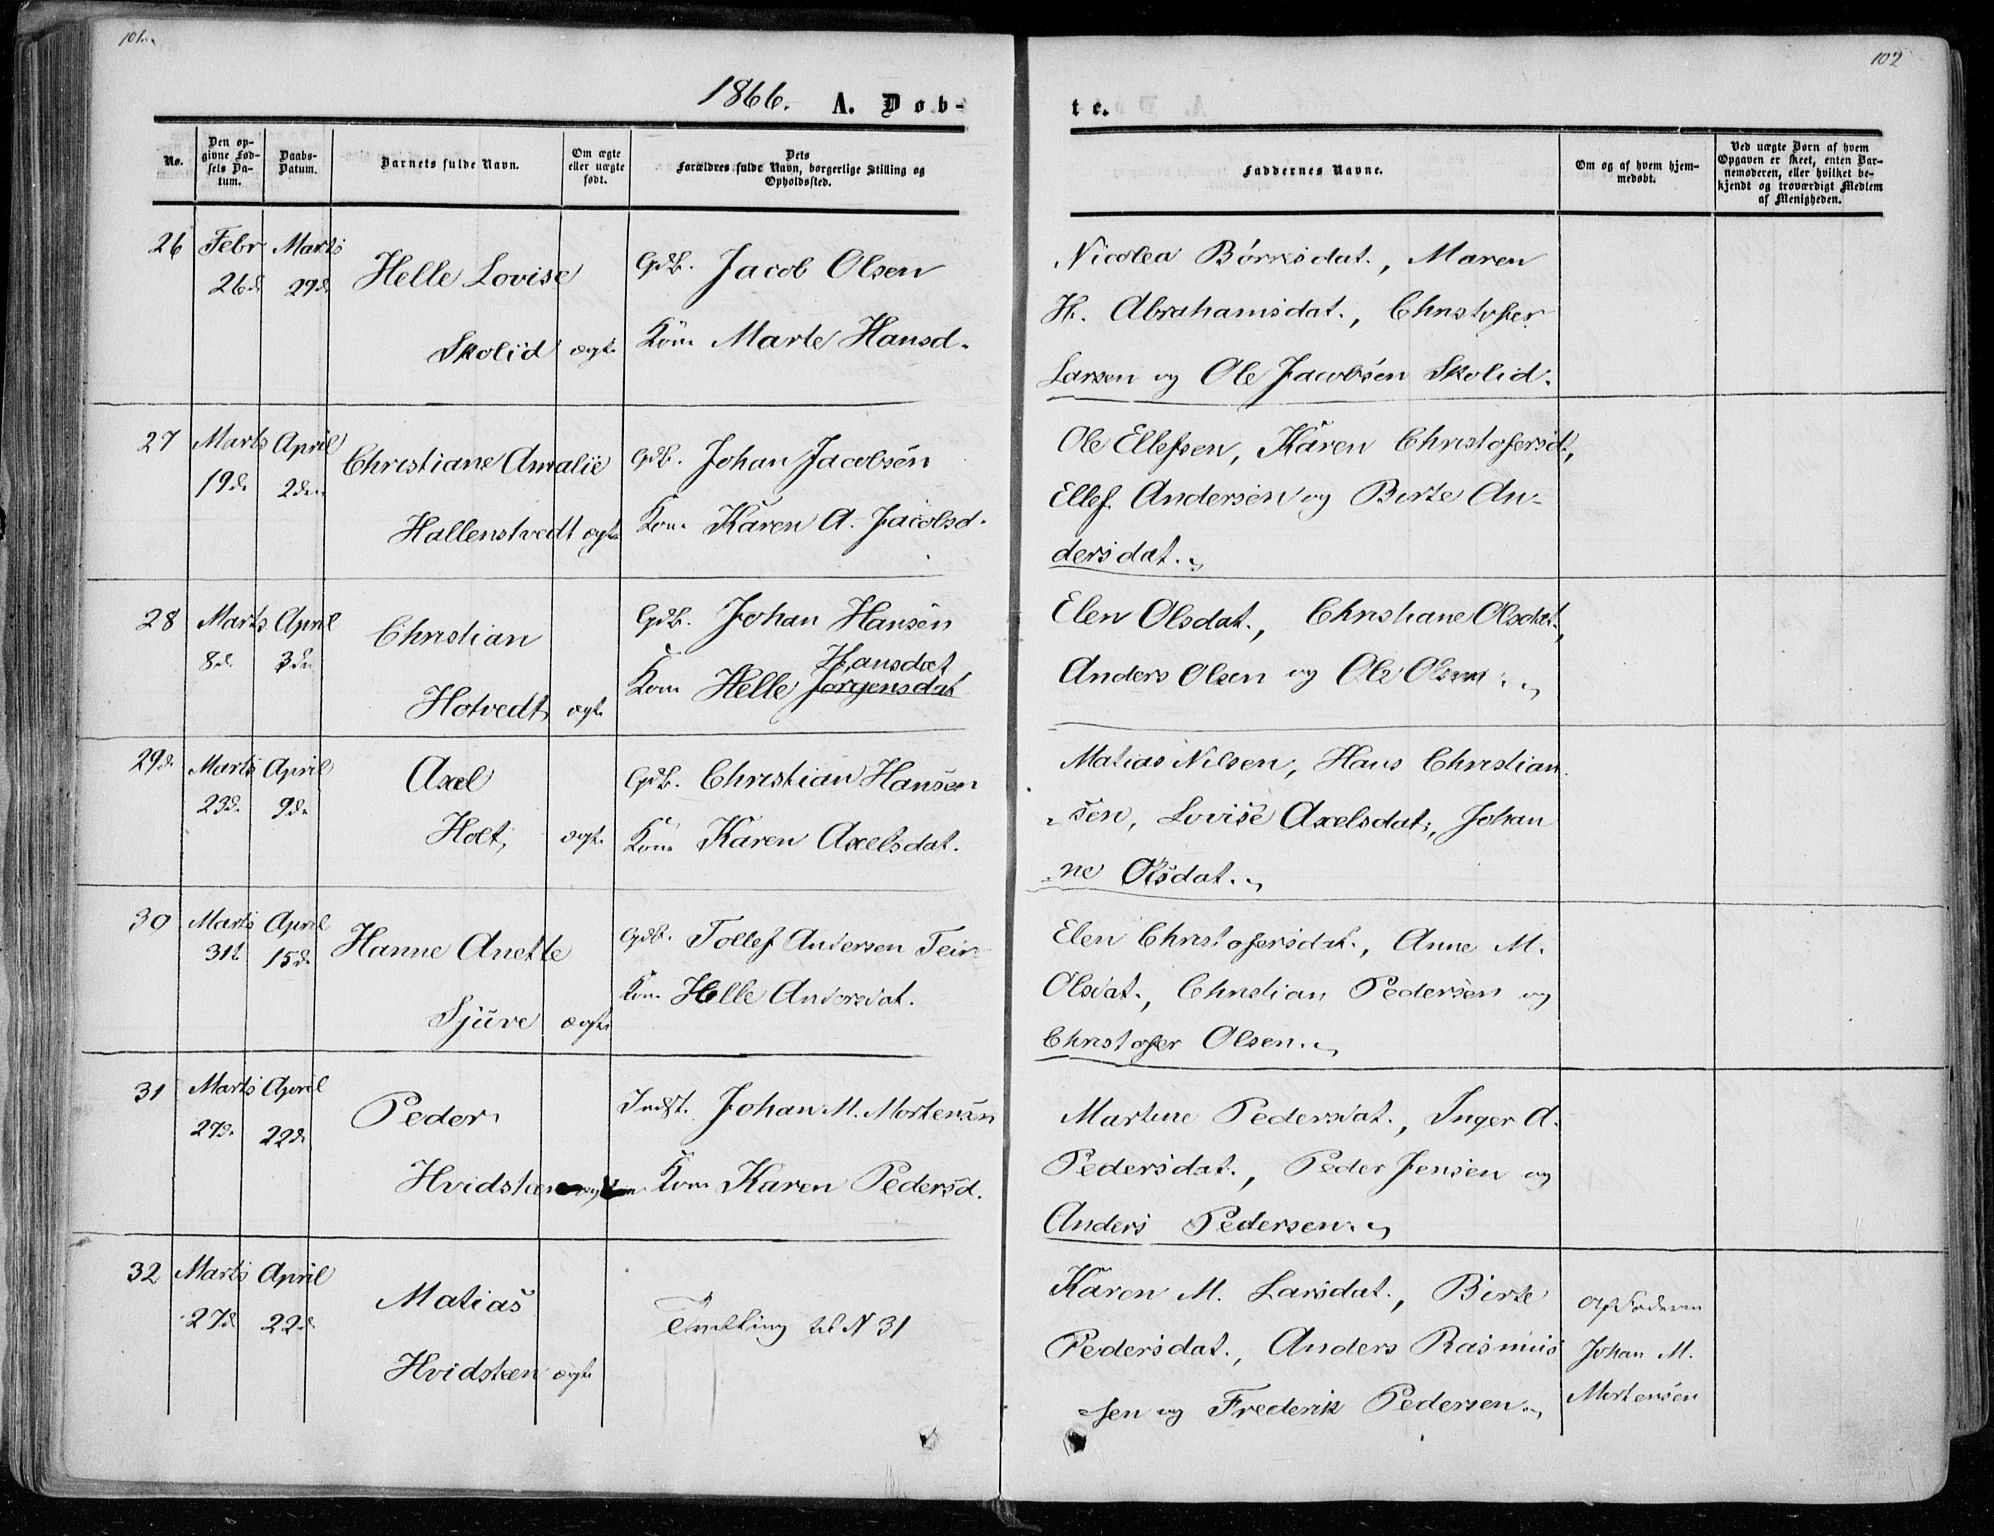 101.
102
1866. A. Døb-
te.
No.
Den opgivne Fødsels Datum.
Daabs-Datum.
Barnets fulde Navn.
Om ægte eller uægte født.
Dets Forældres fulde Navn, borgerlige Stilling og Opholdssted.
Faddernes Navne.
Om og af hvem hjemmedøbt.
Ved uægte Børn af hvem Opgaven er skeet, enten Barnemoderen, eller hvilket bekjendt og troværdigt Medlem af Menigheden.
26 Febr Marts Helle Lovise Gdb. Jacob Olsen
26d. 29d.
Skolid ægt. Kone Marte Hansd.
Nicolea Børresdat., Maren
H. Abrahamsdat., Christofer
Larsen og Ole Jacobsen Skolid.
27 Marts April Christiane Amalie Gdb. Johan Jacobsen
19d. 2den
Hallenstvedt ægt. Kone Karen A. Jacobsd.
Ole Ellefsen, Karen Christofersd.,
Ellef Andersen og Berte An-
dersdat.
28 Marts April Christian Gdb. Johan Hansen
8d. 3die
Hansdat
Hotvedt ægt. Kone Helle Jørgensdat
Elen Olsdat., Christiane Olsdat.,
Anders Olsen og Ole Olsen.
29d. Marts April Axel Gdb. Christian Hansen
23d. 9d.
Holt, ægt. Kone Karen Axelsdat.
Matias Nilsen, Hans Christian
sen, Lovise Axelsdat., Johan
ne Olsdat.
30 Marts April Hanne Anette Gdb. Tollef Andersen
31t 15d.
Sjüre ægt. Kone Helle Andersdat.
Elen Christofersdat., Anne M.
Olsdat., Christian Pedersen og
Christofer Olsen.
31 Marts April Peder Indst. Johan M. Mortensen
27d. 22d.
Hvidsteen Kone Karen Pedersd.
Martine Pedersdat., Inger A.
Pedersdat., Peder Jensen og
Anders Pedersen.
32 Marts April Matias
27d. 22d.
Tvilling til N 31
Hvidsteen ægt.
Karen M. Larsdat., Berte
Pedersdat., Anders Rasmus
sen og Frederik Pedersen.
af Faderen
Johan M.
Mortensen